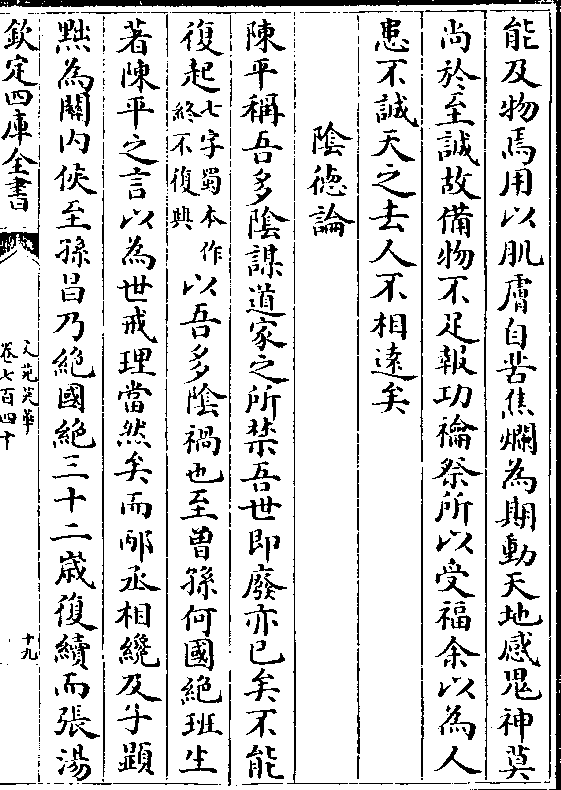 能及物焉用以肌膚自苦焦爛為期動天地感鬼神莫
尚於至誠故備物不足報功禴祭所以受福余以為人
患不誠天之去人不相遠矣
陰徳論
陳平稱吾多陰謀道家之所禁吾世即廢亦已矣不能
復起七字蜀本作終不復興以吾多陰禍也至曽孫何國絶班生
著陳平之言以為世戒理當然矣而邴丞相纔及子顕
黜為關内侯至孫昌乃絶國絶三十二嵗復續而張湯
欽定四庫全書
文苑英華
卷七百四十
十九